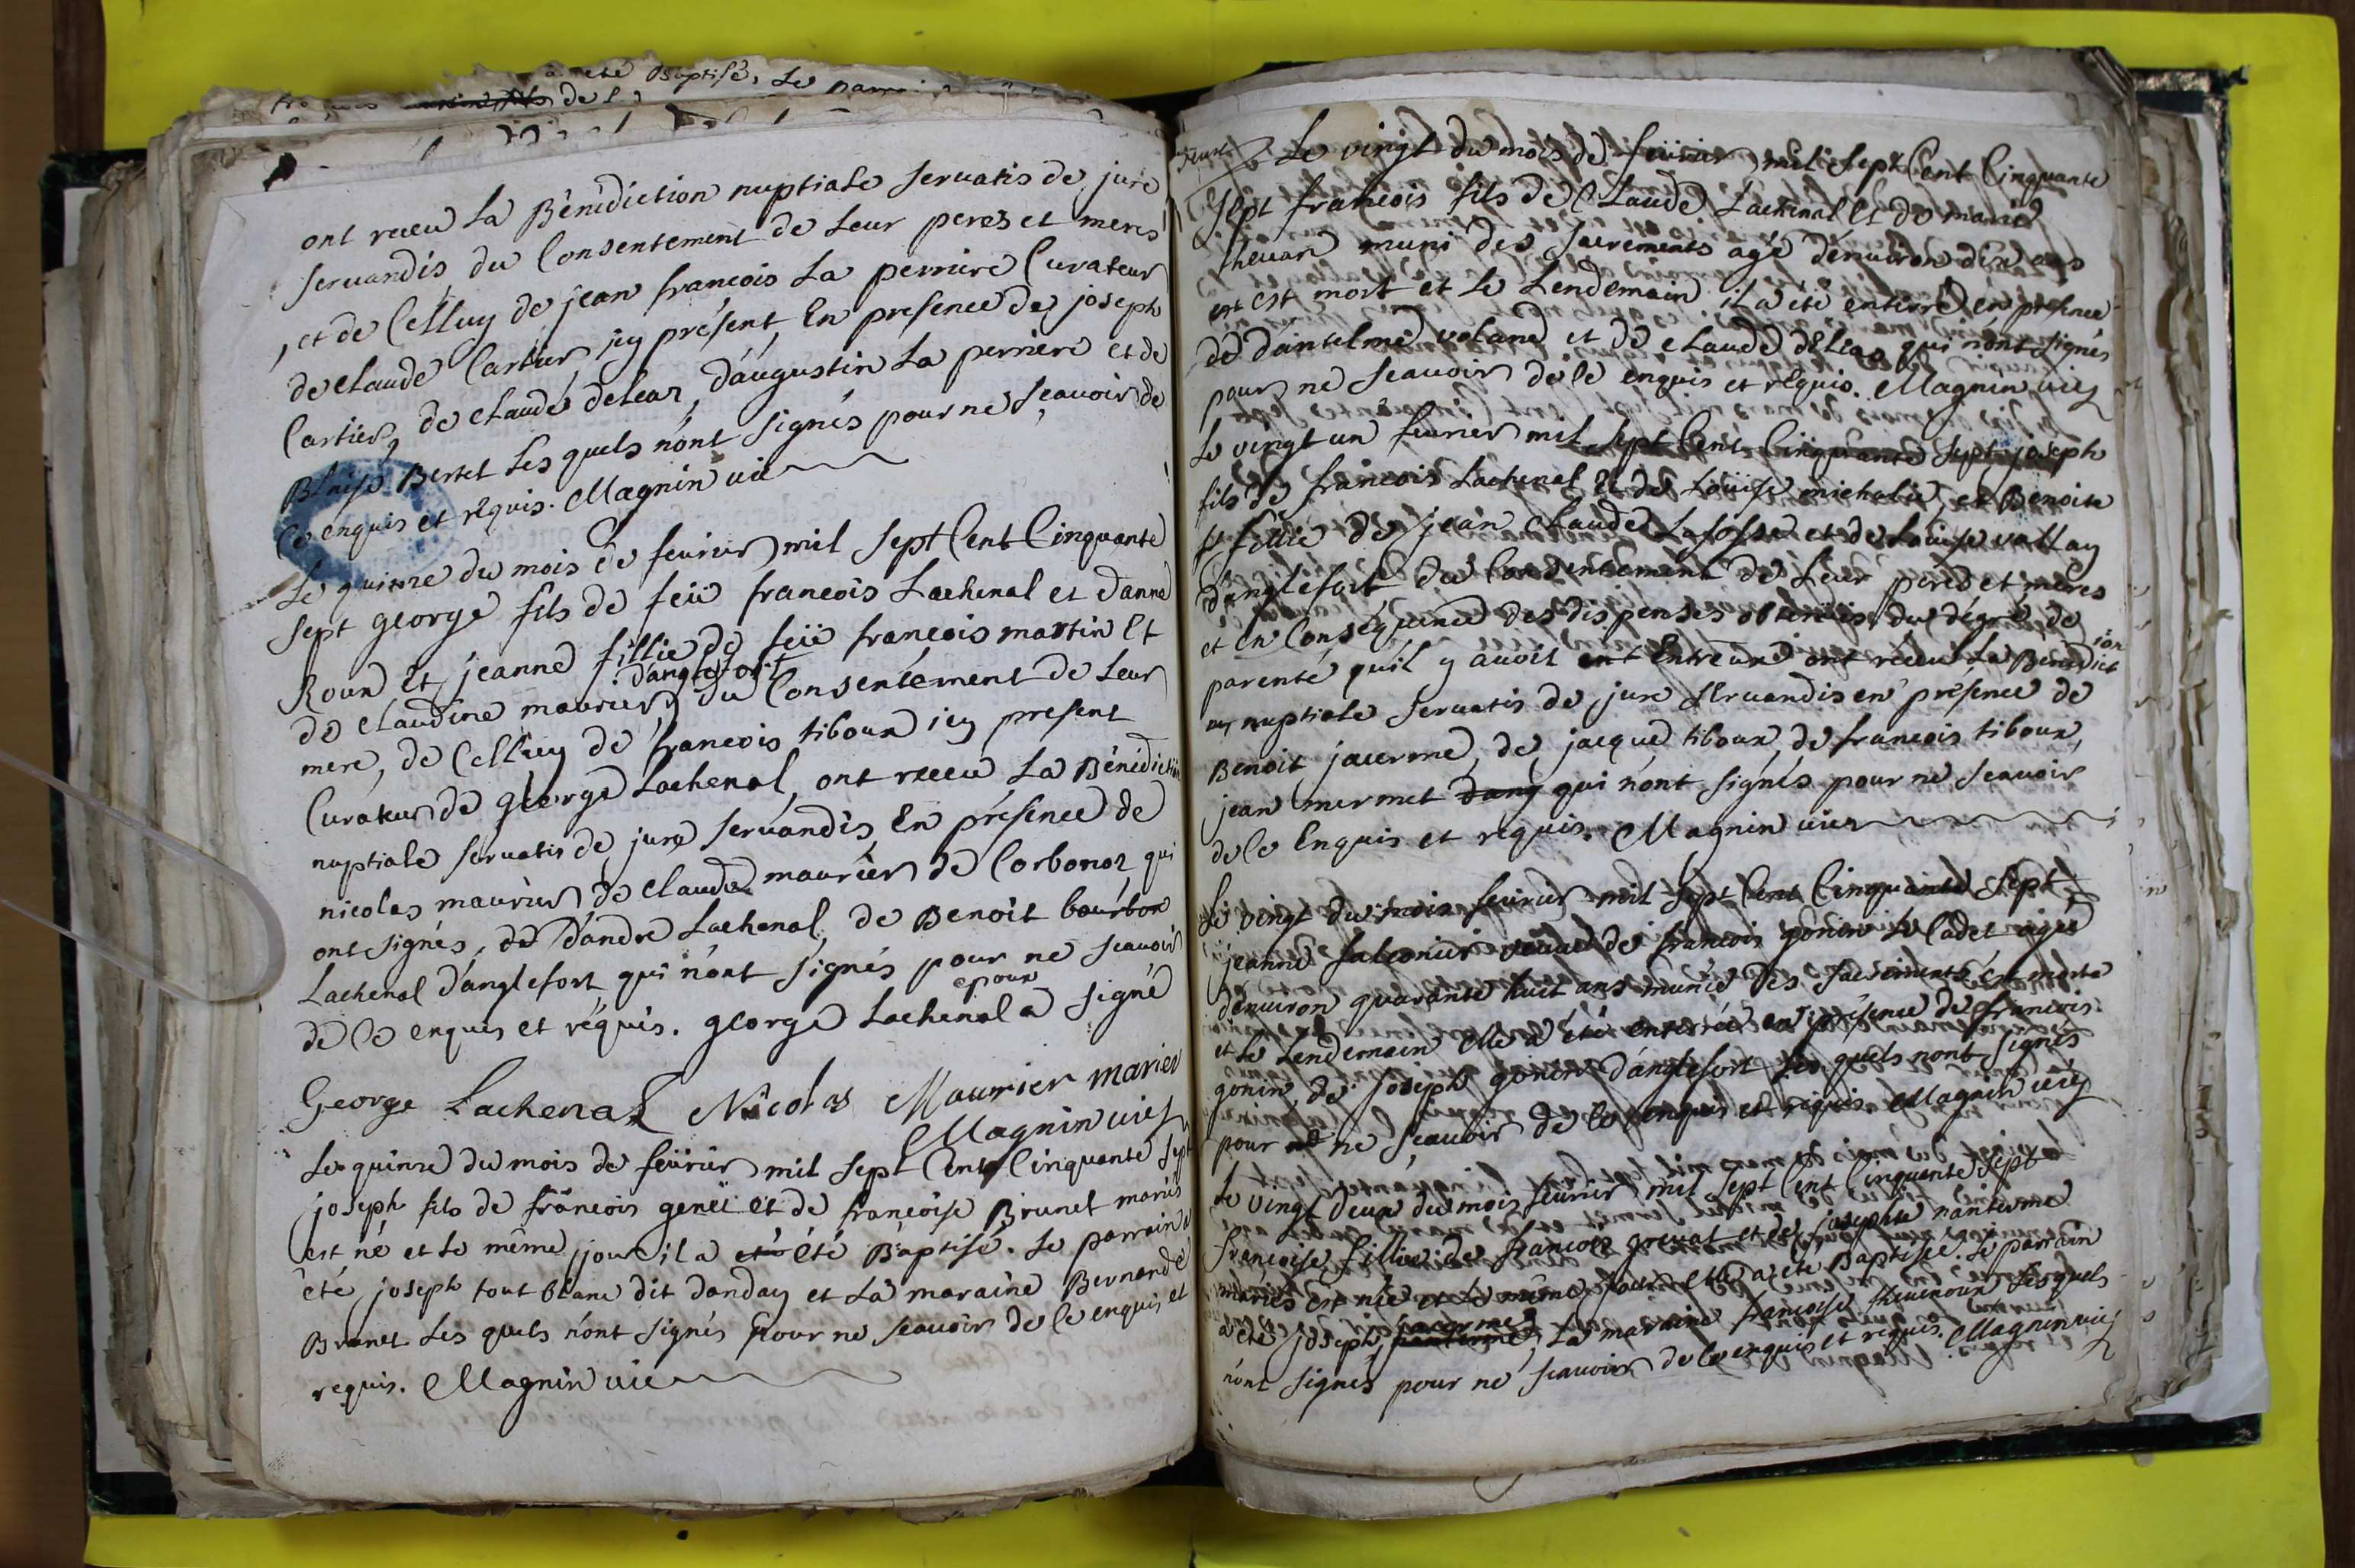 a eté Baptisé, Le parrain
de L
ont receu La Bénédiction nuptiale servatis de jure
servandis du Consentement de Leur peres et meres
, et de Celluy de jean francois La perriere Curateur
de claude Cartier, icy présent, En presence de joseph
Cartier, de claude deleaz, d'augustin La perriere et de
Blaise Bertet Les quels n'ont signés pour ne sçauoir de
Ce enquis et requis. Magnin vic
Le quinze du mois de feurier mil sept Cent Cinquante
sept george fils de feü francois Lachenal et d'anne
Roux et jeanne fillie de feü francois martin et
d'anglefort
de claudine maurier, du Consentement de Leur
mere, de Celluy de francois tiboux icy present
Curateur de george Lachenal, ont receu La Bénédiction
nuptiale servatis de jure servandis En présence de
nicolas maurier, de claude maurier de Corbonoz qui
ont signés, de d'andre Lachenal, de Benoit bourbon
Lachenal d'anglefort qui n'ont signés pour ne sçauoir
epoux
de Ce enquis et réquis. george Lachenal a signé
George Lachenal Nicolas Maurier marier
Magnin vic
Le quinze du mois de feürier mil sept Cent Cinquante sept
joseph fils de francois geneï et de francoise Brunet mariés
est né et Le même jour il a eté été Baptisé. Le parrain a
été joseph tout blanc dit danday et La maraine Bernarde
Brunet Les quels n'ont signés pour ne sçauoir de Ce enquis et
requis. Magnin vic
Le vingt du mois de feürier mil sept Cent Cinquante
sept francois fils de Claude Lachenal et de marie
theuar muni des sacrements agé d'enuiron dix ans
est mort et Le Lendemain il a été enterré en présence
de d'antelme volane et de claude deleaz qui n'ont signés
pour ne sçauoir de Ce enquis et réquis. Magnin vic
Le vingt un feurier mil sept Cent Cinquante sept joseph
fils de francois Lachenal et de Loüise michalie, et Benoite
fillie de jean claude Lafosse et de Loüise vallay
d'anglefort du Consentement de Leur peres et meres
et en Conséquence des dispenses obtenües du dégré de
parenté qu'il y auoit ent Entre eux ont receu La Benedict
ion
nuptiale servatis de jure servandis en présence de
Benoit jacerme, de jacque tiboux, de francois tiboux,
jean mermet dang qui n'ont signés pour ne sçauoir
de Ce Enquis et requis. Magnin vic
Le vingt du mois feurier mil sept Cent Cinquante sept
jeanne falconier veuue de francois gonin Le Cadet agée
d'enuiron quarante huit ans munie des sacrements est morte
et Le Lendemain elle a été enterrée en présence de francois
gonin, de joseph gonin d'anglefort Les quels n'ont signés
pour ne sçauoir de Ce enquis et réquis Magnin vic
Le vingt deux du mois feurier mil sept Cent Cinquante sept
francoise fillie de francois greuat et de josephte nanterme
mariés est née et Le même jour elle a été Baptisée. Le parrain
jacerme
a été joseph, La maraine francoise theuenoux Lesquels
n'ont signés pour ne sçauoir de Ce enquis et requis. Magnin vic